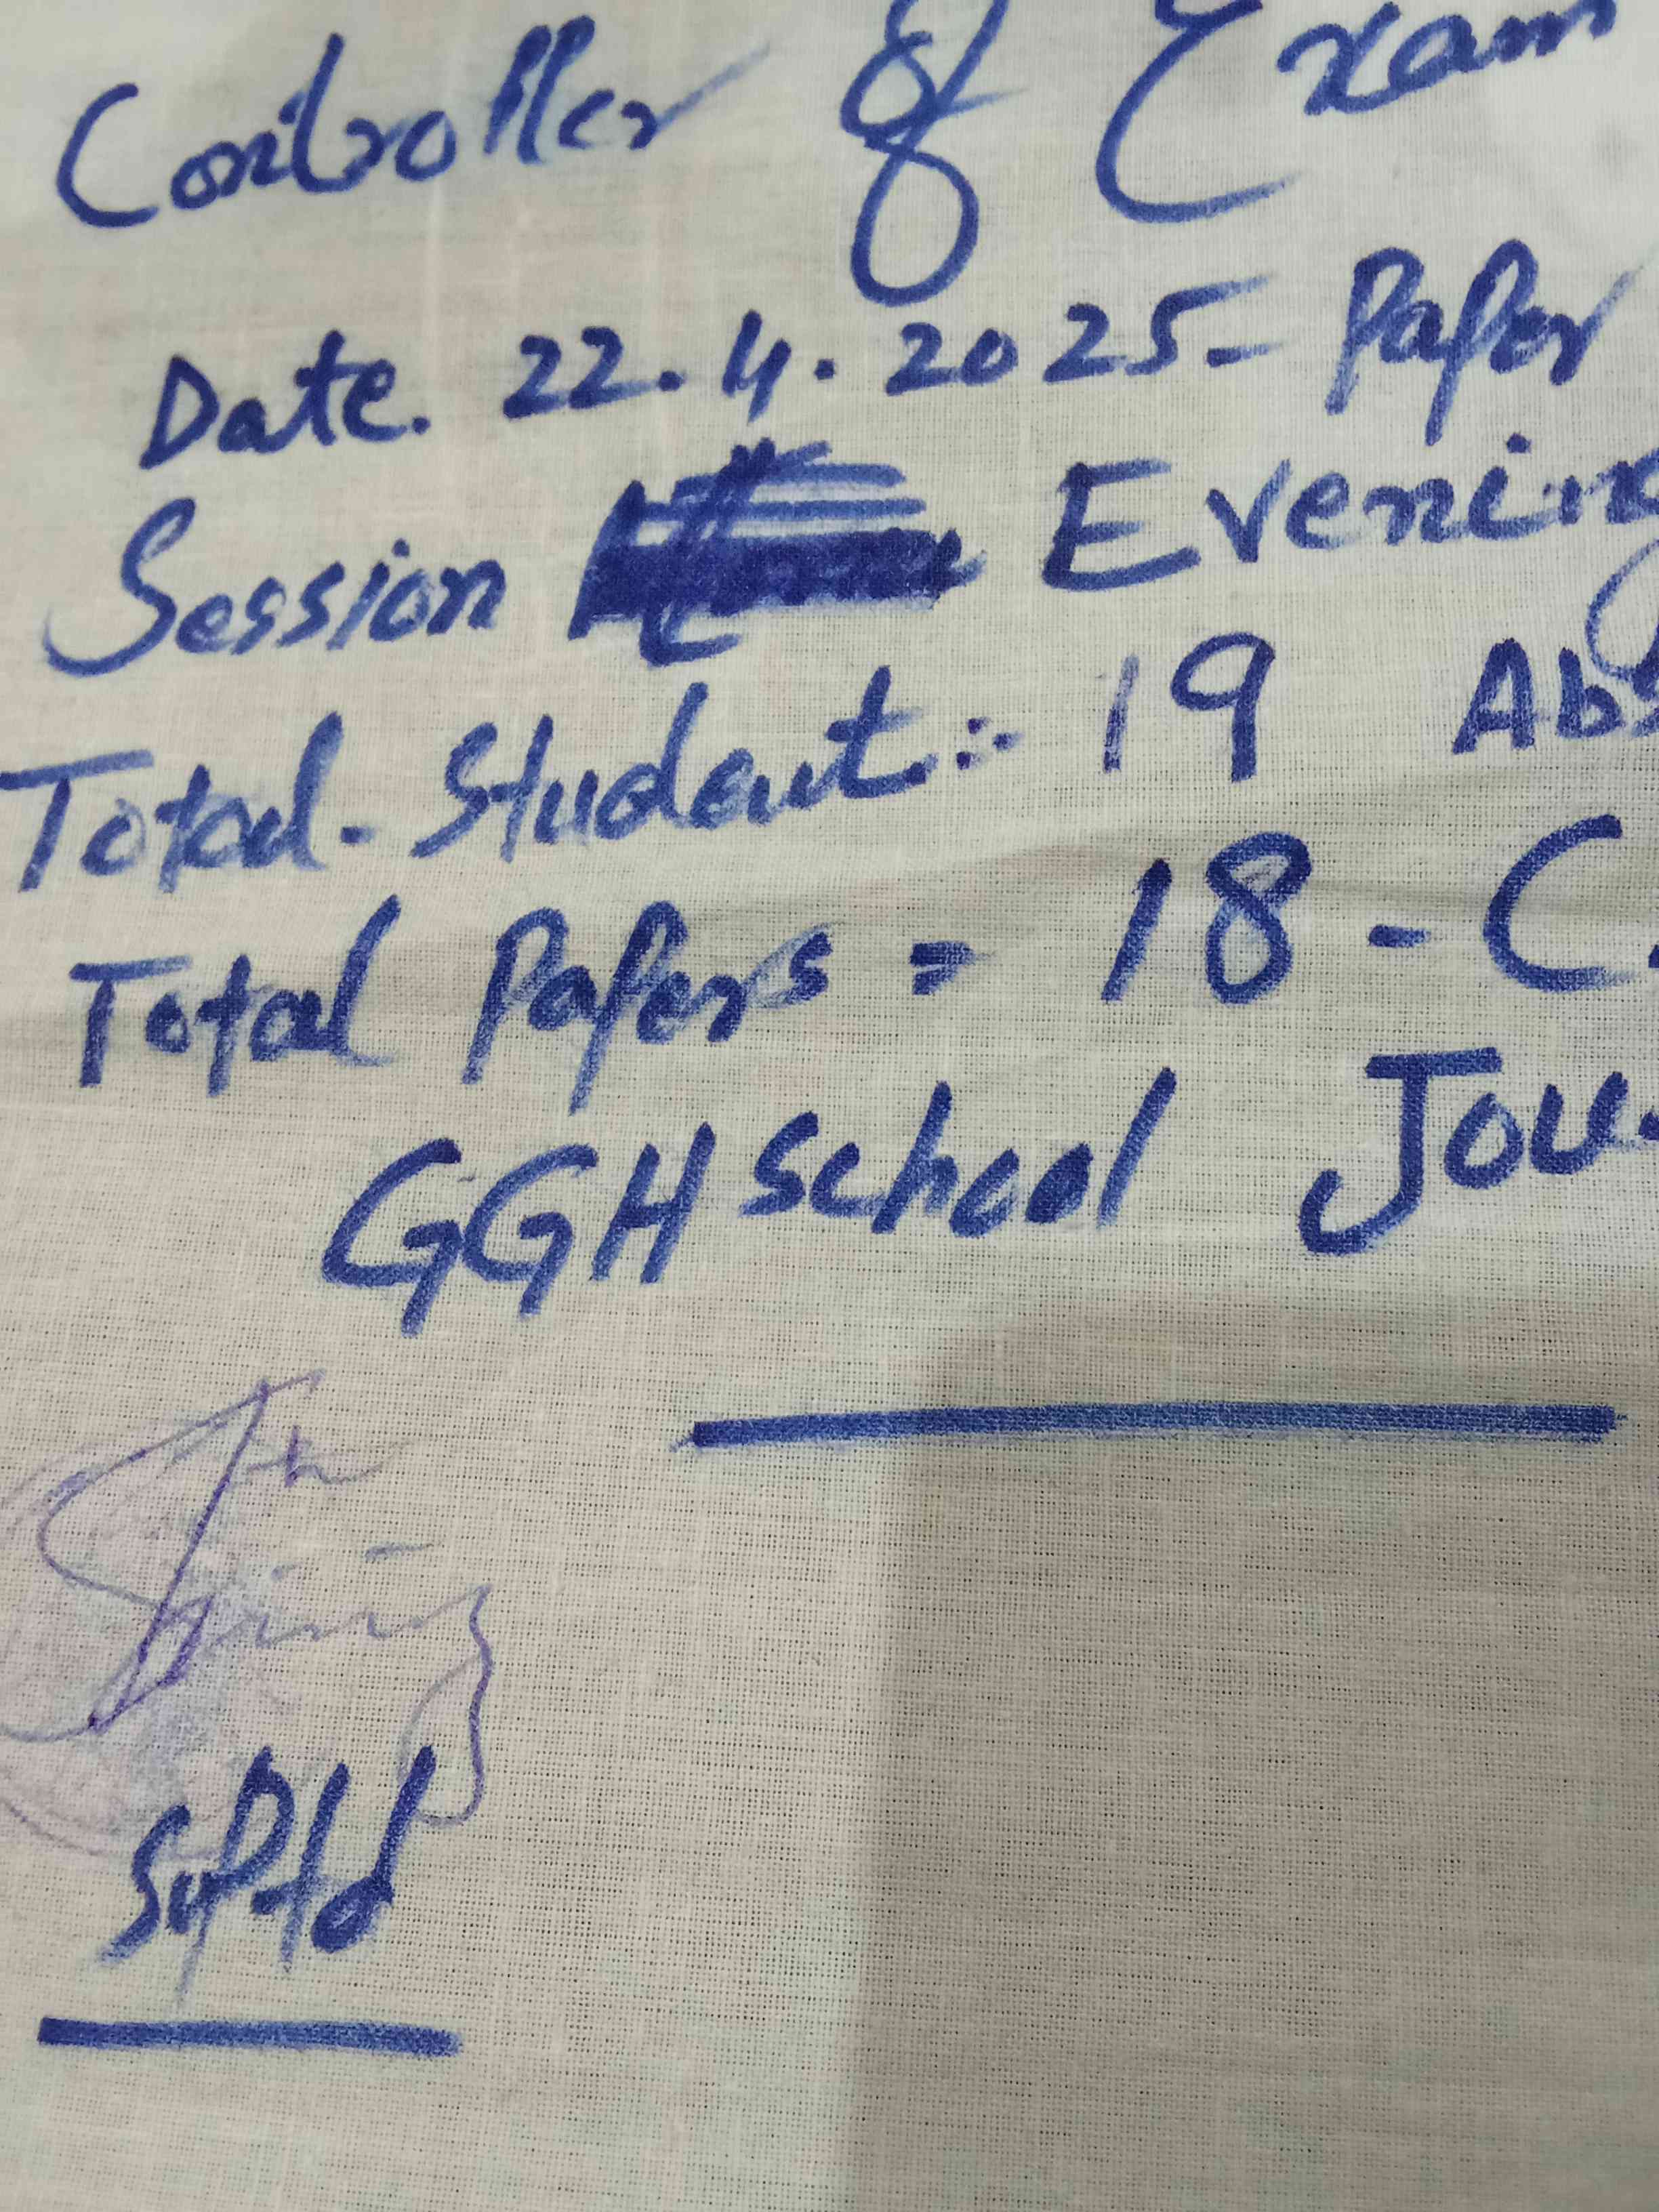 Controller of Exam
Date. 22.4.2025- Paper
Session Evening
Total. Student:- 19 Abs
Total Papers = 18 - C.
GGH school Jou
Suptd